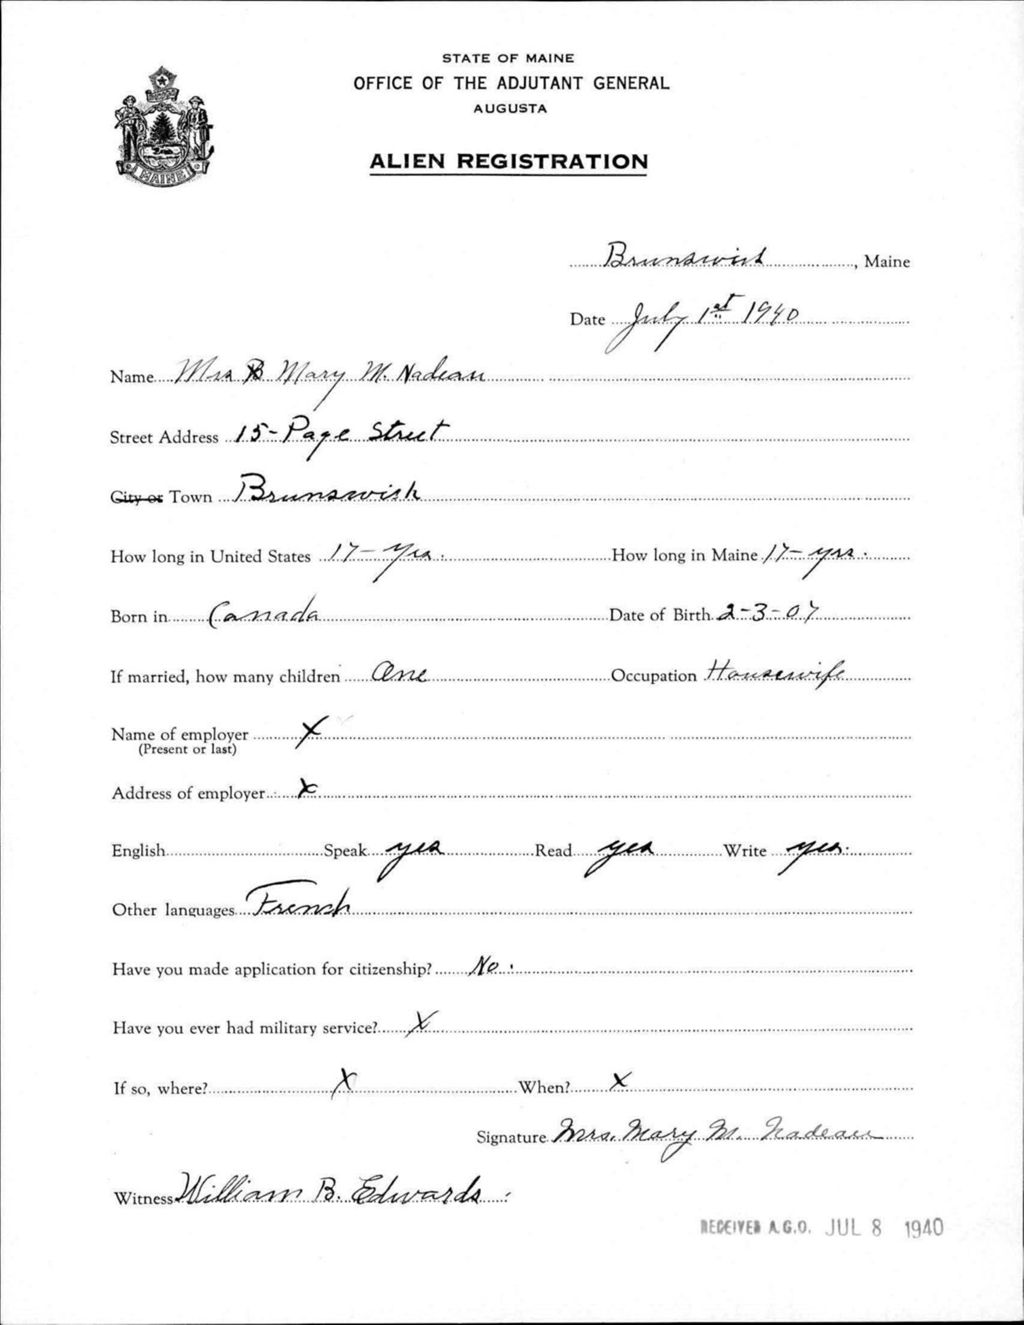 STATE OF MAINE
OFFICE OF THE ADJUTANT GENERAL
AUGUSTA
ALIEN REGISTRATION
MAINE
Brunswick, Maine
Date July 1st 1940
Name Mrs B Mary M. Nadeau
Street Address 15- Page Street
City or Town Brunswick
How long in United States 17- Yrs. How long in Maine 17- yrs.
Born in Canada Date of Birth 2-3-07
If married, how many children One Occupation Housewife
Name of employer X
(Present or last)
Address of employer X
English Speak yes Read yes Write yes.
Other languages French
Have you made application for citizenship? No.
Have you ever had military service? X
If so, where? X When? X
Signature Mrs. Mary M. Nadeau
Witness William B. Edwards
RECEIVED A.G.O. JUL 8 1940